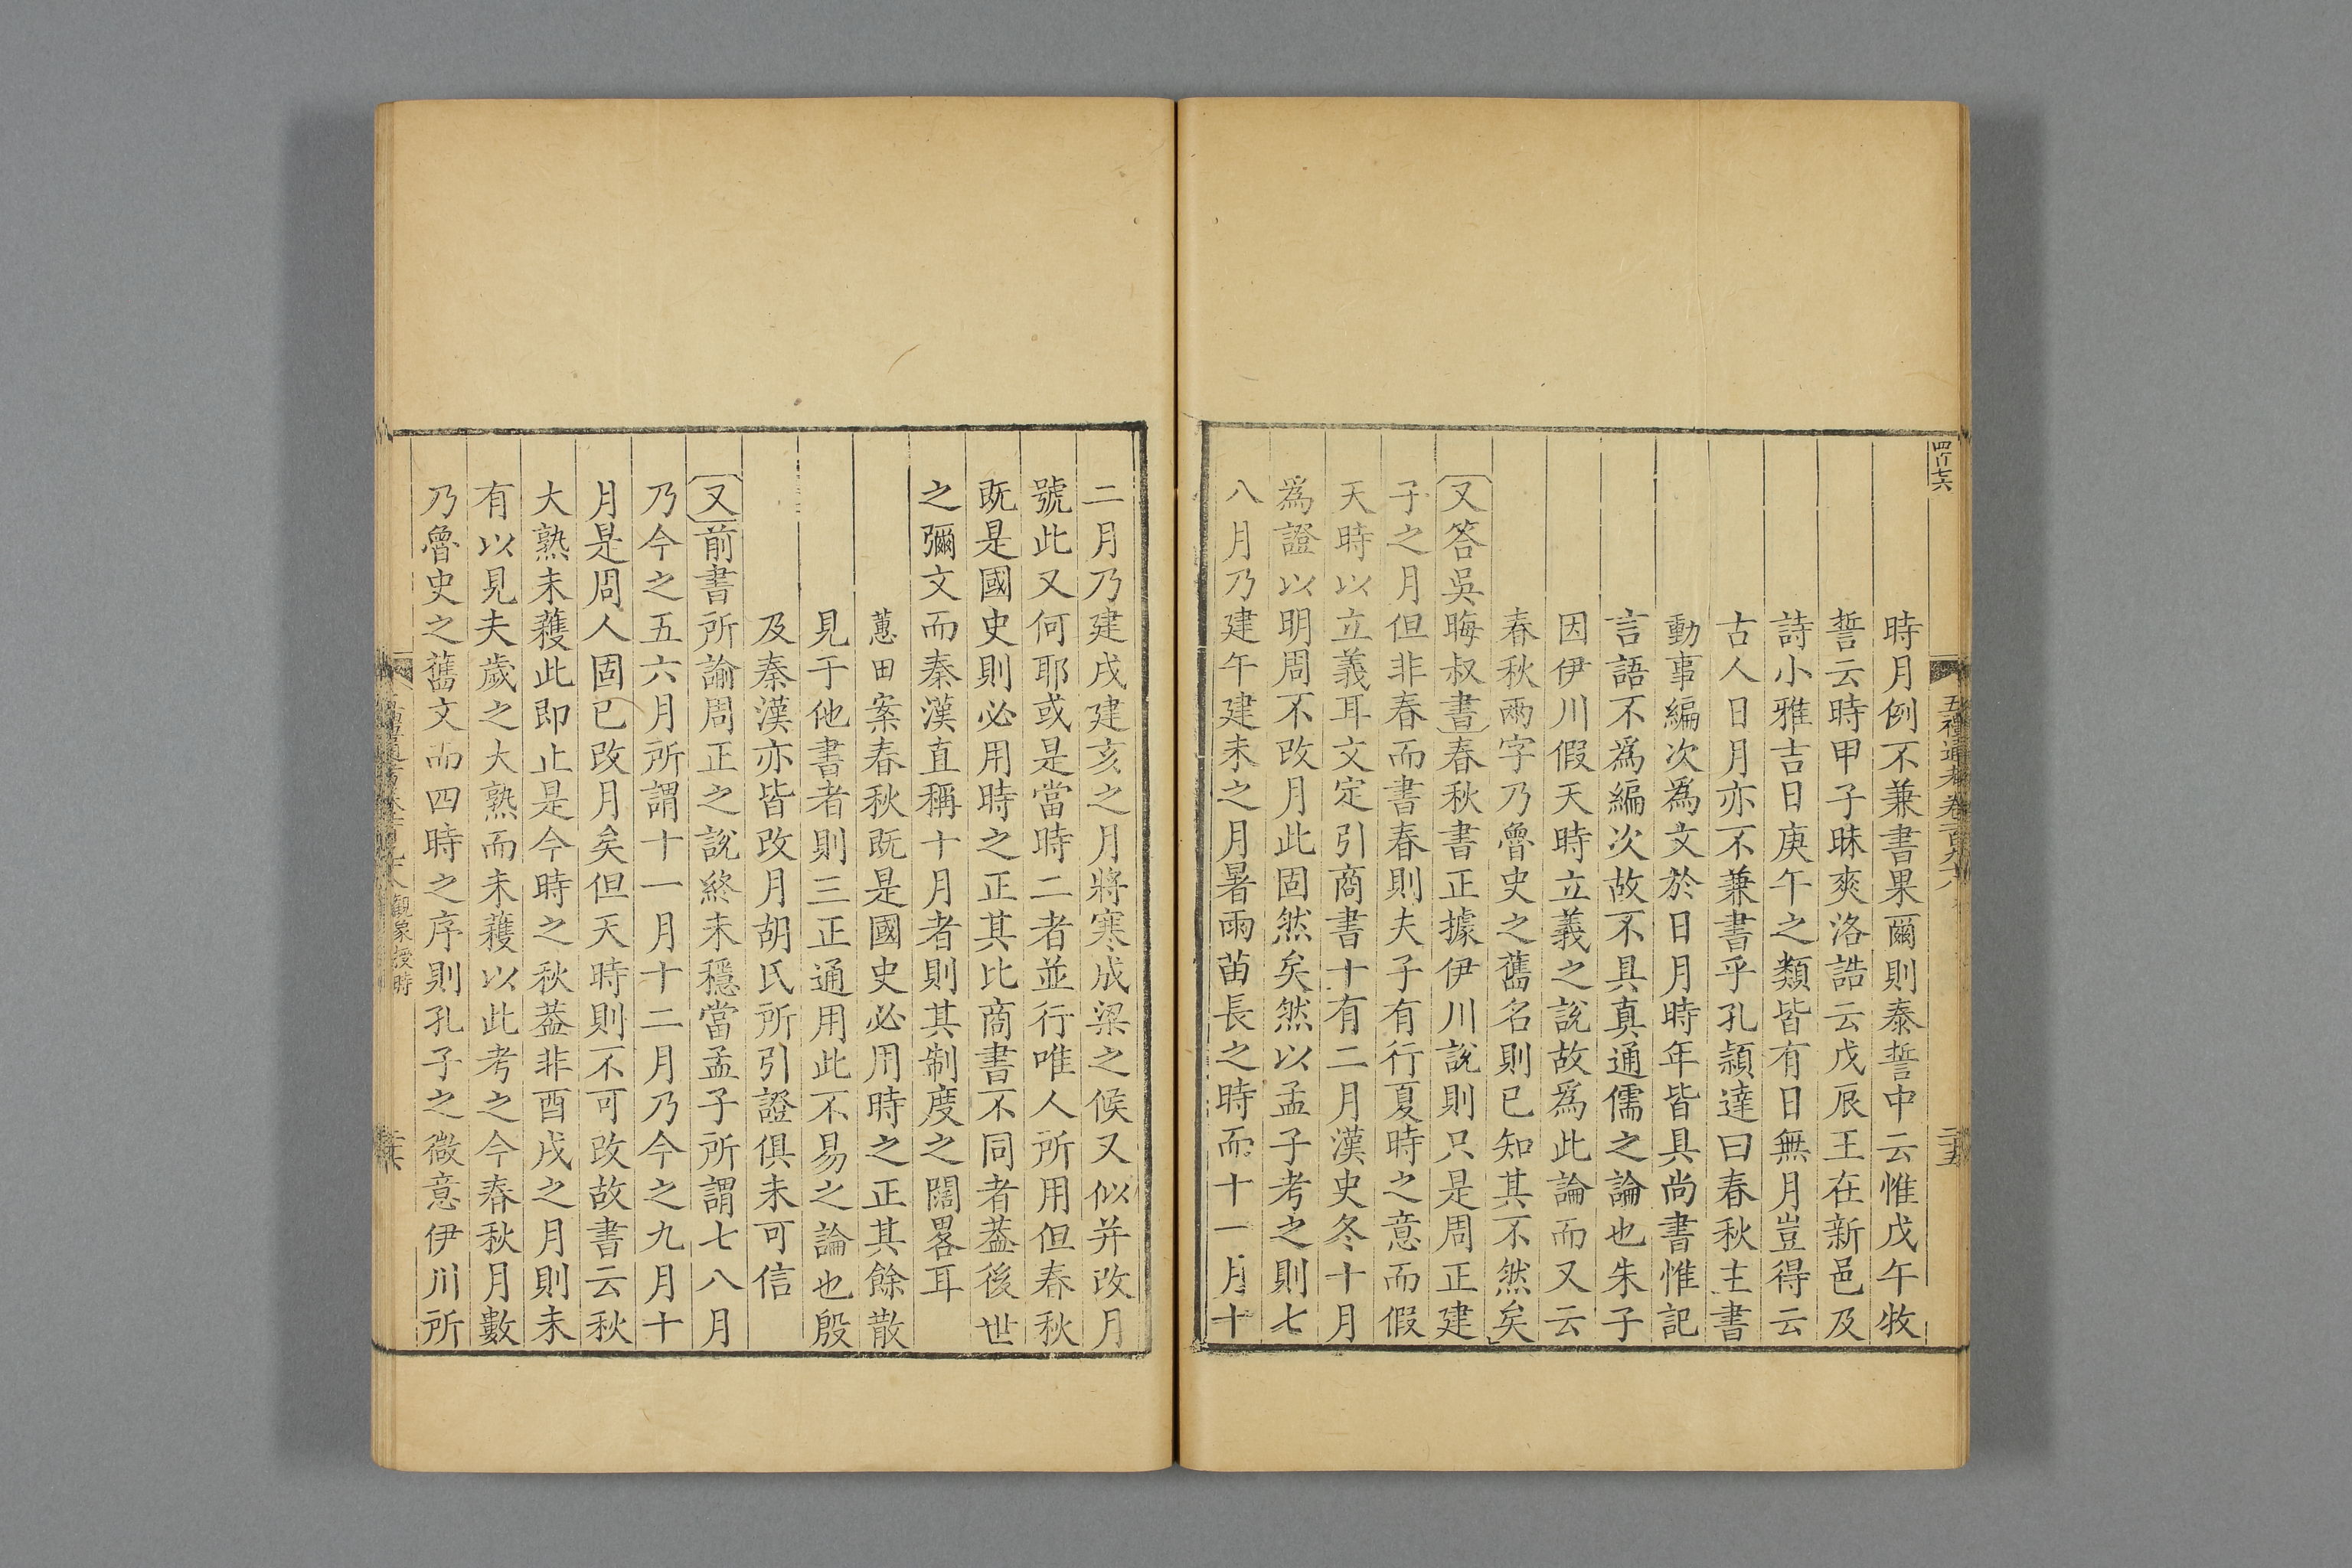 四百七六
五禮通考卷一百九十八
二十五
時月例不兼書果爾則泰誓中云惟戊午牧
誓云時甲子昧爽洛誥云戊辰王在新邑及
詩小雅吉日庚午之類皆有日無月豈得云
古人日月亦不兼書乎孔穎達曰春秋主書
動事編次爲文於日月時年皆具尚書惟記
言語不爲編次故不具真通儒之論也朱子
因伊川假天時立義之說故爲此論而又云
春秋兩字乃魯史之舊名則已知其不然矣
又答吳晦叔書春秋書正據伊川說則只是周正建
子之月但非春而書春則夫子有行夏時之意而假
天時以立義耳文定引商書十有二月漢史冬十月
爲證以明周不改月此固然矣然以孟子考之則七
八月乃建午建未之月暑雨苗長之時而十一月十
二月乃建戌建亥之月將寒成梁之候又似并改月
號此又何耶或是當時二者並行唯人所用但春秋
既是國史則必用時之正其比商書不同者葢後世
之彌文而秦漢直稱十月者則其制度之闊畧耳
蕙田案春秋既是國史必用時之正其餘散
見于他書者則三正通用此不易之論也殷
及秦漢亦皆改月胡氏所引證俱未可信
又前書所論周正之說終未穩當孟子所謂七八月
乃今之五六月所謂十一月十二月乃今之九月十
月是周人固已改月矣但天時則不可改故書云秋
大熟未穫此即止是今時之秋葢非酉戌之月則未
有以見夫歲之大熟而未穫以此考之今春秋月數
乃魯史之舊文而四時之序則孔子之微意伊川所
觀象授時